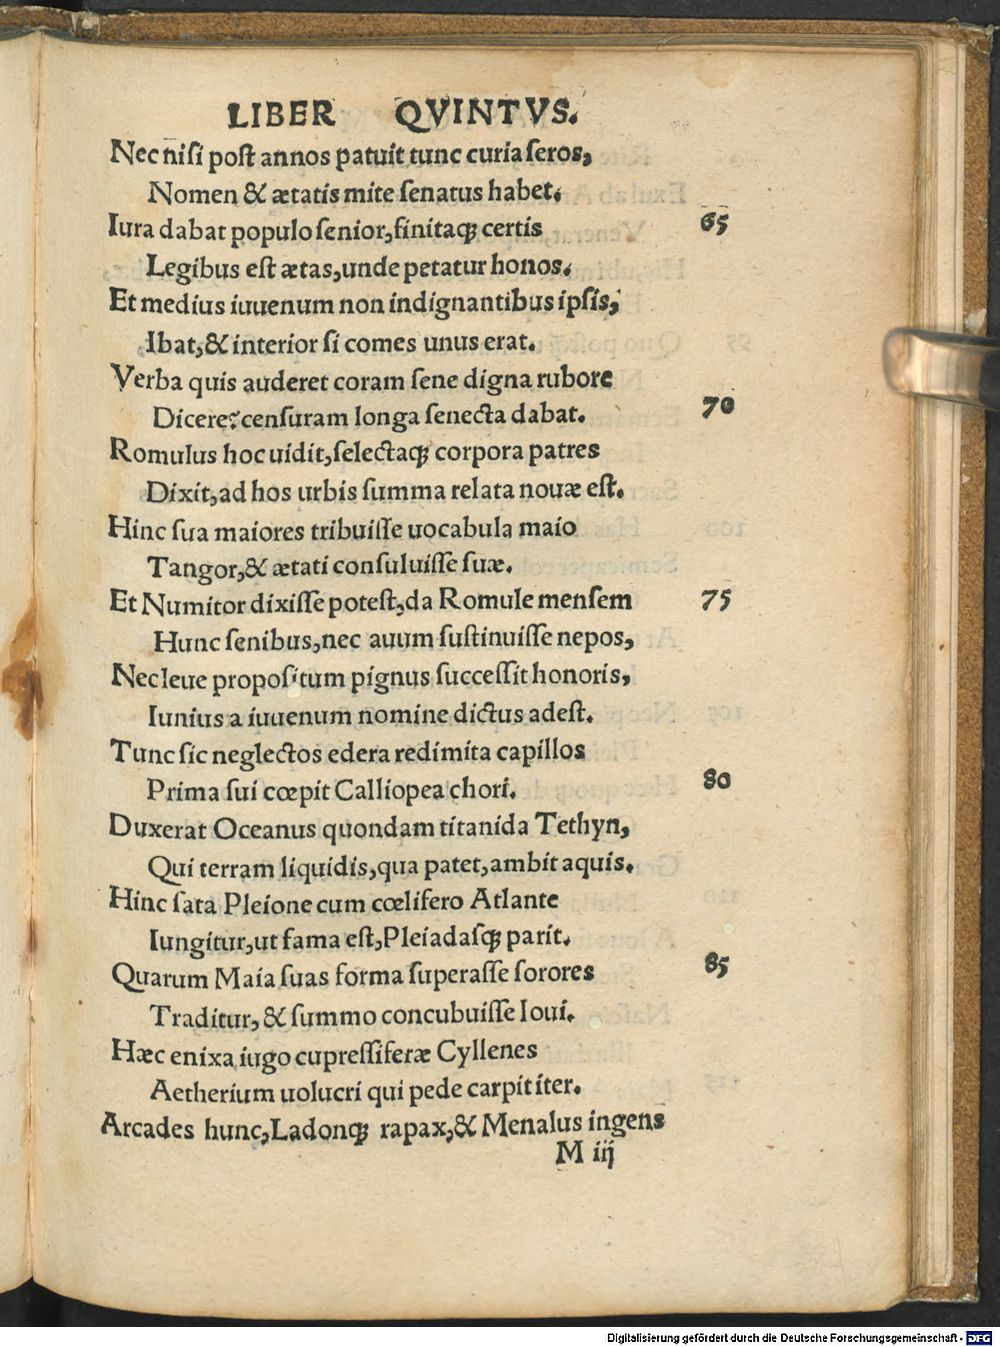 LIBER QVINTVS.
Nec nisi post annos patuit tunc curia seros,
Nomen & ætatis mite senatus habet.
Iura dabat populo senior, finitaq; certis 65
Legibus est ætas, unde petatur honos.
Et medius iuuenum non indignantibus ipsis,
Ibat, & interior si comes unus erat.
Verba quis auderet coram sene digna rubore
Dicere? censuram longa senecta dabat. 70
Romulus hoc uidit, selectaq; corpora patres
Dixit, ad hos urbis summa relata nouæ est.
Hinc sua maiores tribuisse uocabula maio
Tangor, & ætati consuluisse suæ.
Et Numitor dixisse potest, da Romule mensem 75
Hunc senibus, nec auum sustinuisse nepos,
Nec leue propositum pignus successit honoris,
Iunius a iuuenum nomine dictus adest.
Tunc sic neglectos edera redimita capillos
Prima sui cœpit Calliopea chori. 80
Duxerat Oceanus quondam titanida Tethyn,
Qui terram liquidis, qua patet, ambit aquis.
Hinc sata Pleione cum cœlifero Atlante
Iungitur, ut fama est, Pleiadasq; parit.
Quarum Maia suas forma superasse sorores 85
Traditur, & summo concubuisse Ioui.
Hæc enixa iugo cupressiferæ Cyllenes
Aetherium uolucri qui pede carpit iter.
Arcades hunc, Ladonq; rapax, & Menalus ingens
M iij
Digitalisierung gefördert durch die Deutsche Forschungsgemeinschaft - DFG